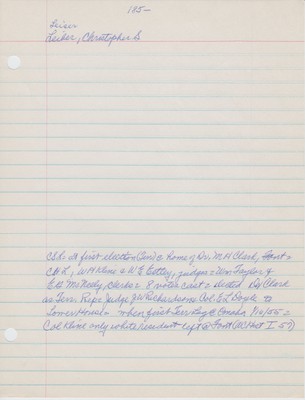 115-
Leiser, Christopher S
CSL at first election (Gen) @ home of Dr. M H Clark, Font=
CHL, W H Kline & W E Estley, judges = Wm Taylor &
E G McNeely, clerks = 8 votes cast = elected Dr Clark
as Terr. Rep. Judge J W Richardson & Col E L Doyle to
Lower House = when first Ter Leg @ Omaha 1/16/55 =
Col Kline only white resident left @ Font (AC Hist I 57)